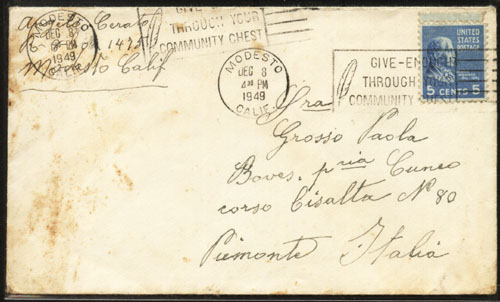 GIVE
THROUGH YOUR
COMMUNITY CHEST
MODESTO
DEC 8
PM
1949
CALIF.
Cerato
1475
Modesto Calif
MODESTO
DEC 8
4 PM
1949
CALIF.
GIVE-ENOUGH
THROUGH
COMMUNITY
UNITED
STATES
POSTAGE
5 CENTS 5
Sra
Grosso Paola
Boves. pria Cuneo
corso Bisalta Nº 80
Piemonte Italia